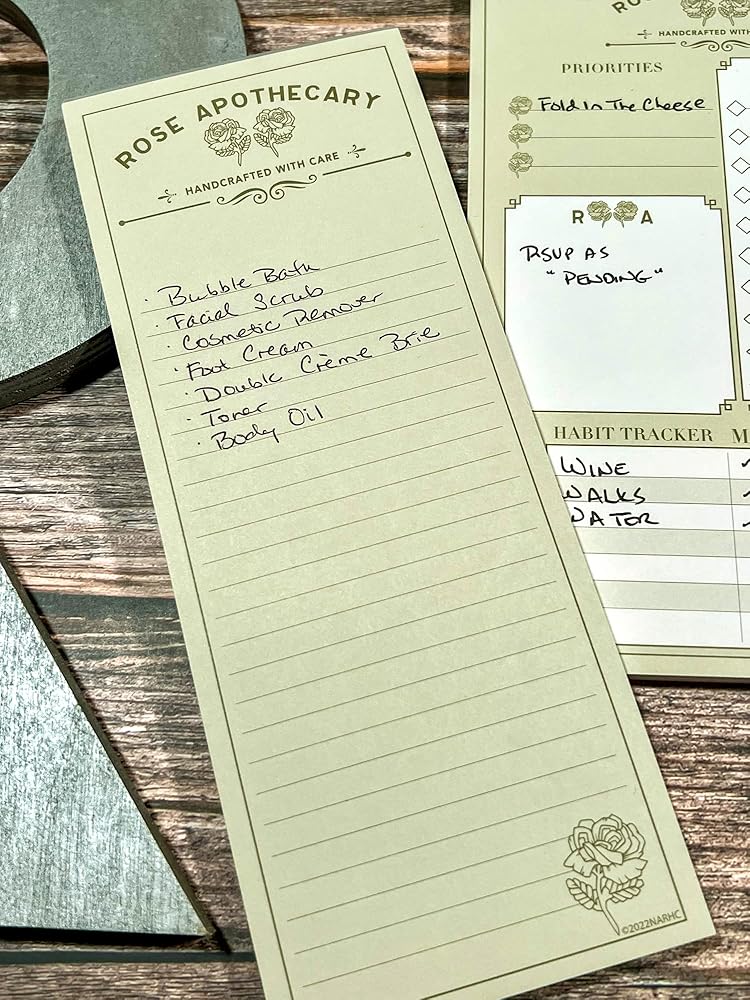 ROSE APOTHECARY
HANDCRAFTED WITH CARE
· Bubble Bath
· Facial Scrub
· Cosmetic Remover
· Foot Cream
· Double Crème Brie
· Toner
· Body Oil
©2022NARHC
HANDCRAFTED WITH
PRIORITIES
Fold In The Cheese
R A
RSVP AS
"PENDING"
HABIT TRACKER M
WINE
WALKS
WATER